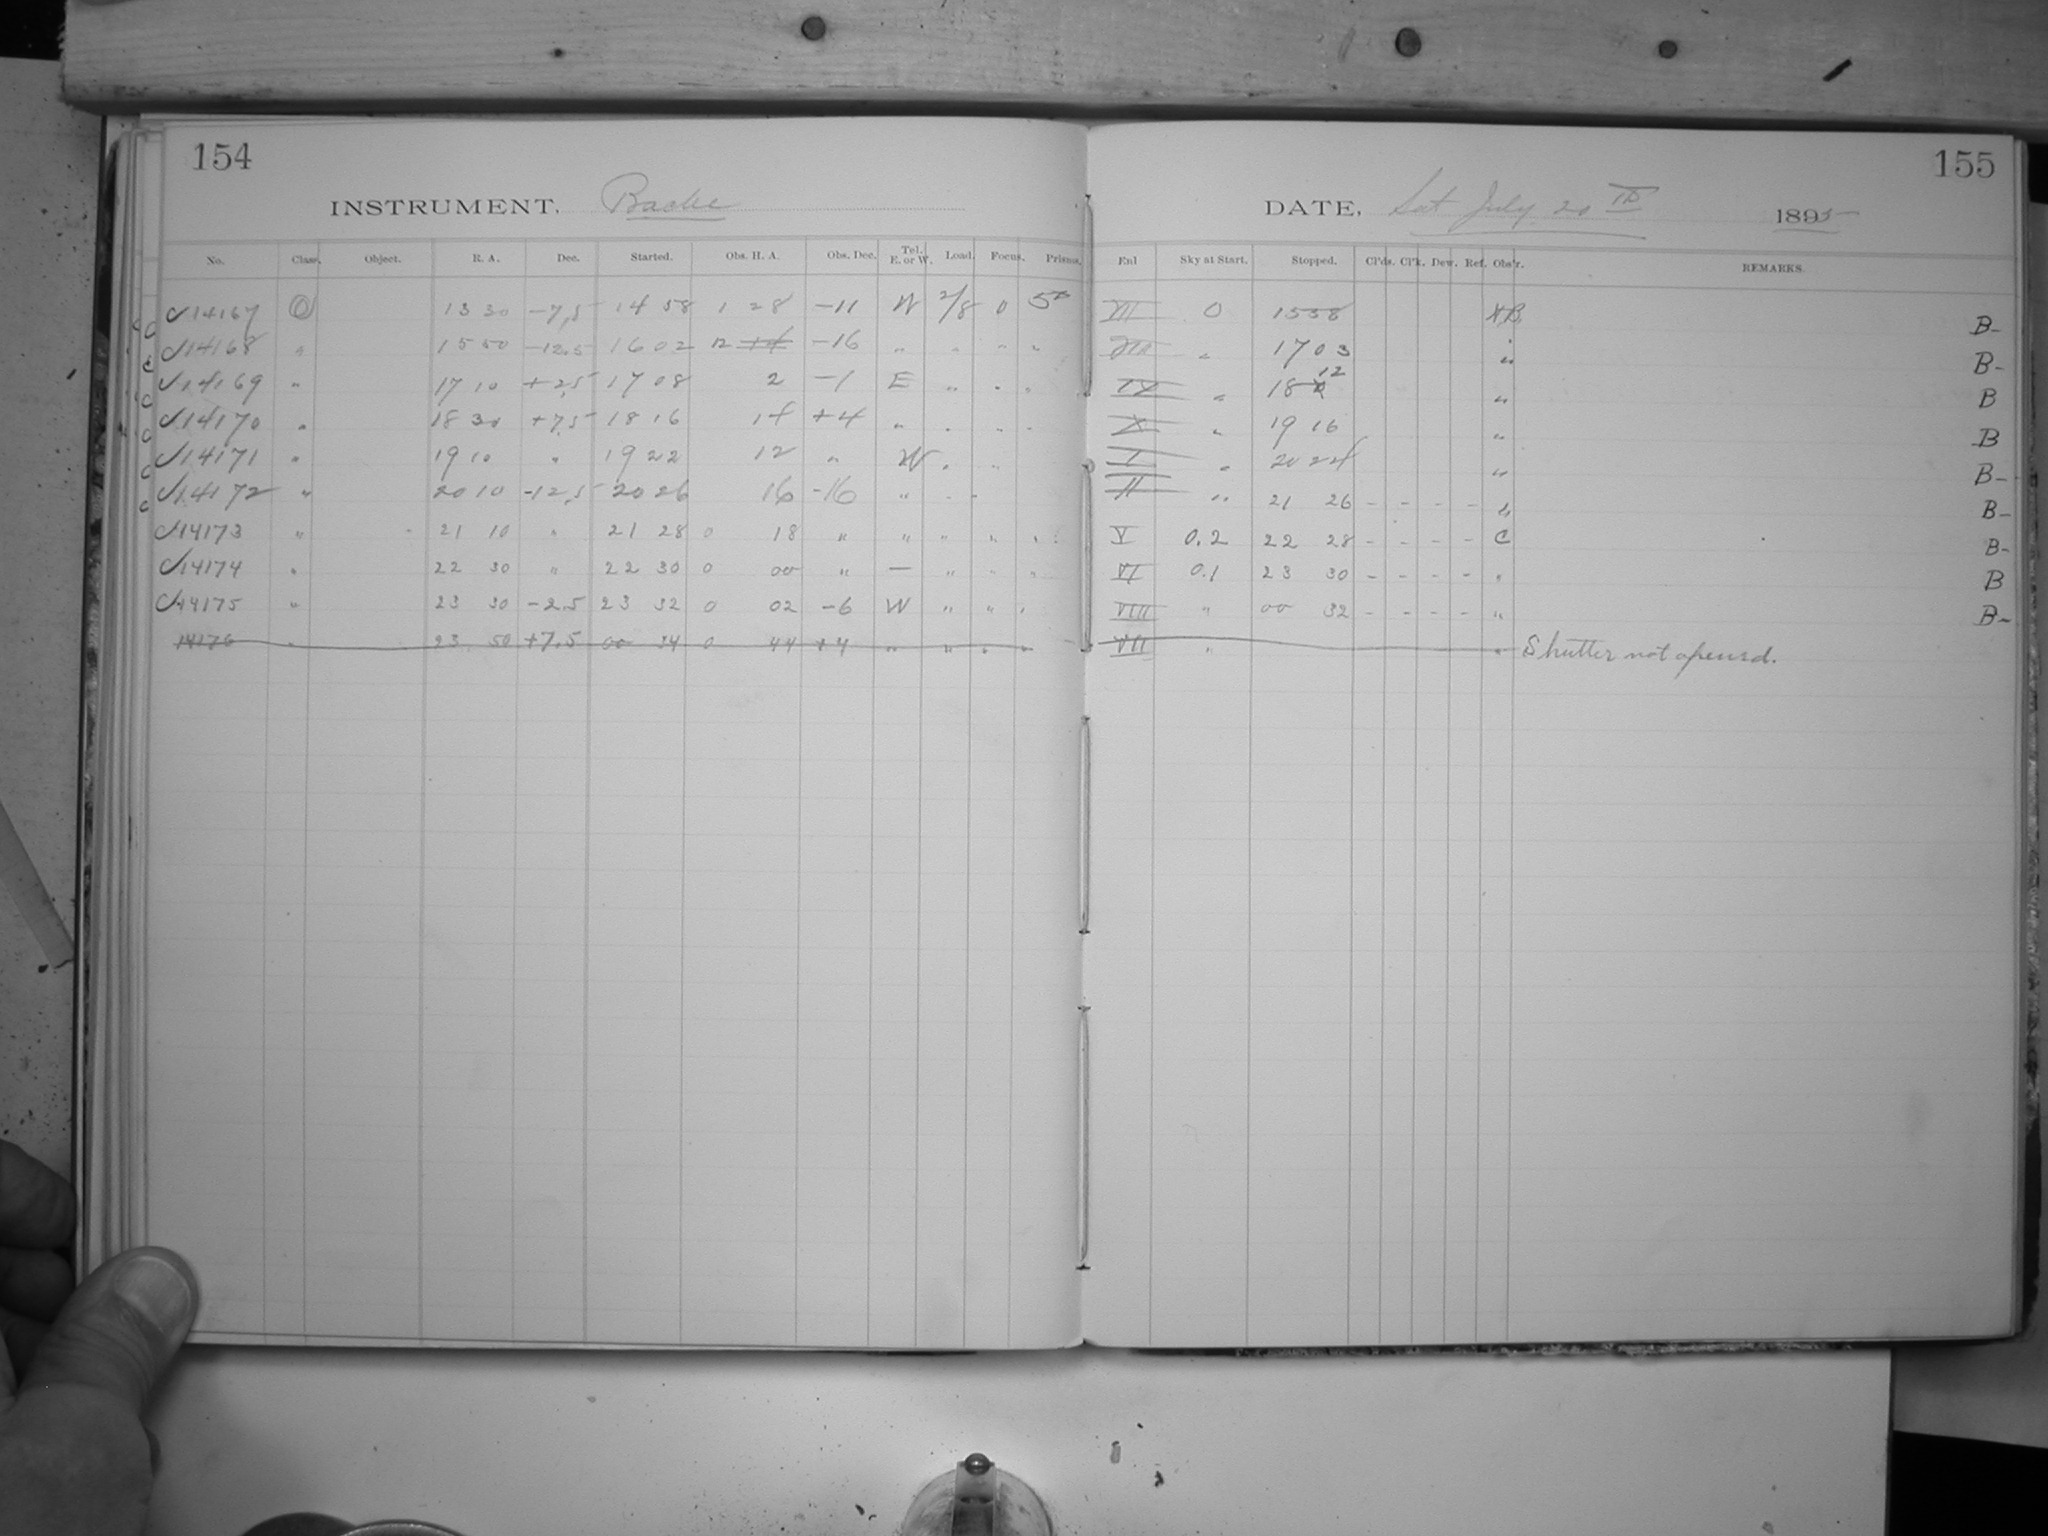 154
INSTRUMENT. Bache
No. Class. Object. R. A. Dec. Started. Obs. H. A. Obs. Dec. Tel. E. or W. Load. Focus. Prisms.
✓14167 O 13 30 -7.5 14 58 1 28 -11 W 2/8 0
✓14168 " 15 50 -12.5 16 02 12 -16 " " " "
✓14169 " 17 10 +2.5 17 08 2 -1 E " " "
✓14170 " 18 30 +7.5 18 16 14 +4 " " " "
✓14171 " 19 10 " 19 22 12 " W " "
✓14172 " 20 10 -12.5 20 26 16 -16 " " "
✓14173 " 21 10 " 21 28 0 18 " " " " "
✓14174 " 22 30 " 22 30 0 00 " — " " "
✓14175 " 23 30 -2.5 23 32 0 02 -6 W " " "
14176 " 23 50 +7.5 00 34 0 44 +4 " " " "
155
DATE, Sat July 20TH 1895
Enl Sky at Start. Stopped. Cl'ds. Cl'k. Dew. Ref. Obs'r. REMARKS.
VII 0 1538 B-
VIII " 17 03 " B-
IX " 18 12 " B
X " 19 16 " B
I " 20 24 " B-
II " 21 26 - - - - " B-
V 0.2 22 28 - - - - C B-
VI 0.1 23 30 - - - - " B
VIII " 00 32 - - - - " B-
VII " " Shutter not opened.